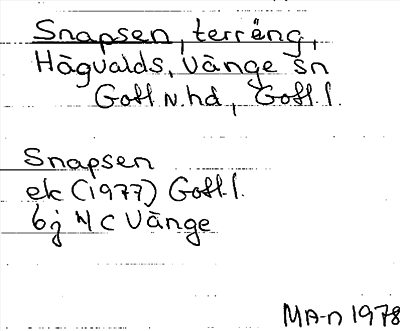 Snapsen, terräng,
Hägvalds, Vänge sn
Gotl. n. hd, Gotl. l.
Snapsen
ek (1977) Gotl. l.
bj 4 C Vänge
MA-n 1978